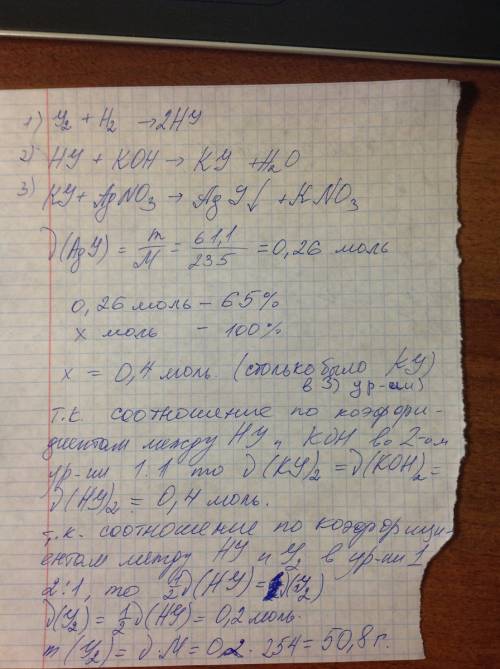 1) У₂ + H₂ → 2HУ
2) HУ + KOH → KУ + H₂O
3) KУ + AgNO₃ → AgУ↓ + KNO₃
ϑ(AgУ) = m/M = 61,1/235 = 0,26 моль
0,26 моль – 65%
x моль – 100%
x = 0,4 моль. (столько было KУ)
в 3) ур-ии)
т.к. соотношение по коэффи-
циентам между HУ и KOH во 2-ом
ур-ии 1:1 то ϑ(KУ)₂ = ϑ(KOH)₂ =
ϑ(HУ)₂ = 0,4 моль.
т.к. соотношение по коэффици-
ентам между HУ и У₂ в ур-ии 1
2:1, то ½ϑ(HУ) = ϑ(У₂)
ϑ(У₂) = ½ϑ(HУ) = 0,2 моль.
m(У₂) = ϑ·M = 0,2 · 254 = 50,8 г.